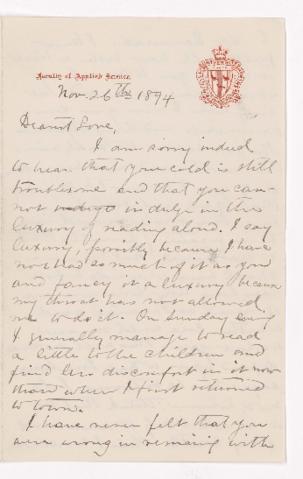 Faculty of Applied Science
Nov. 26th 1894
Dearest Love,
I am sorry indeed
to hear that your cold is still
troublesome and that you can-
not indulge in the
luxury of reading aloud. I say
luxury, possibly because I have
not had so much of it as you
and fancy it a luxury because
my throat has not allowed
me to do it. On Sunday eving
I generally manage to read
a little to the children and
find less discomfort in it now
than when I first returned
to town.
I have never felt that you
were wrong in remaining with